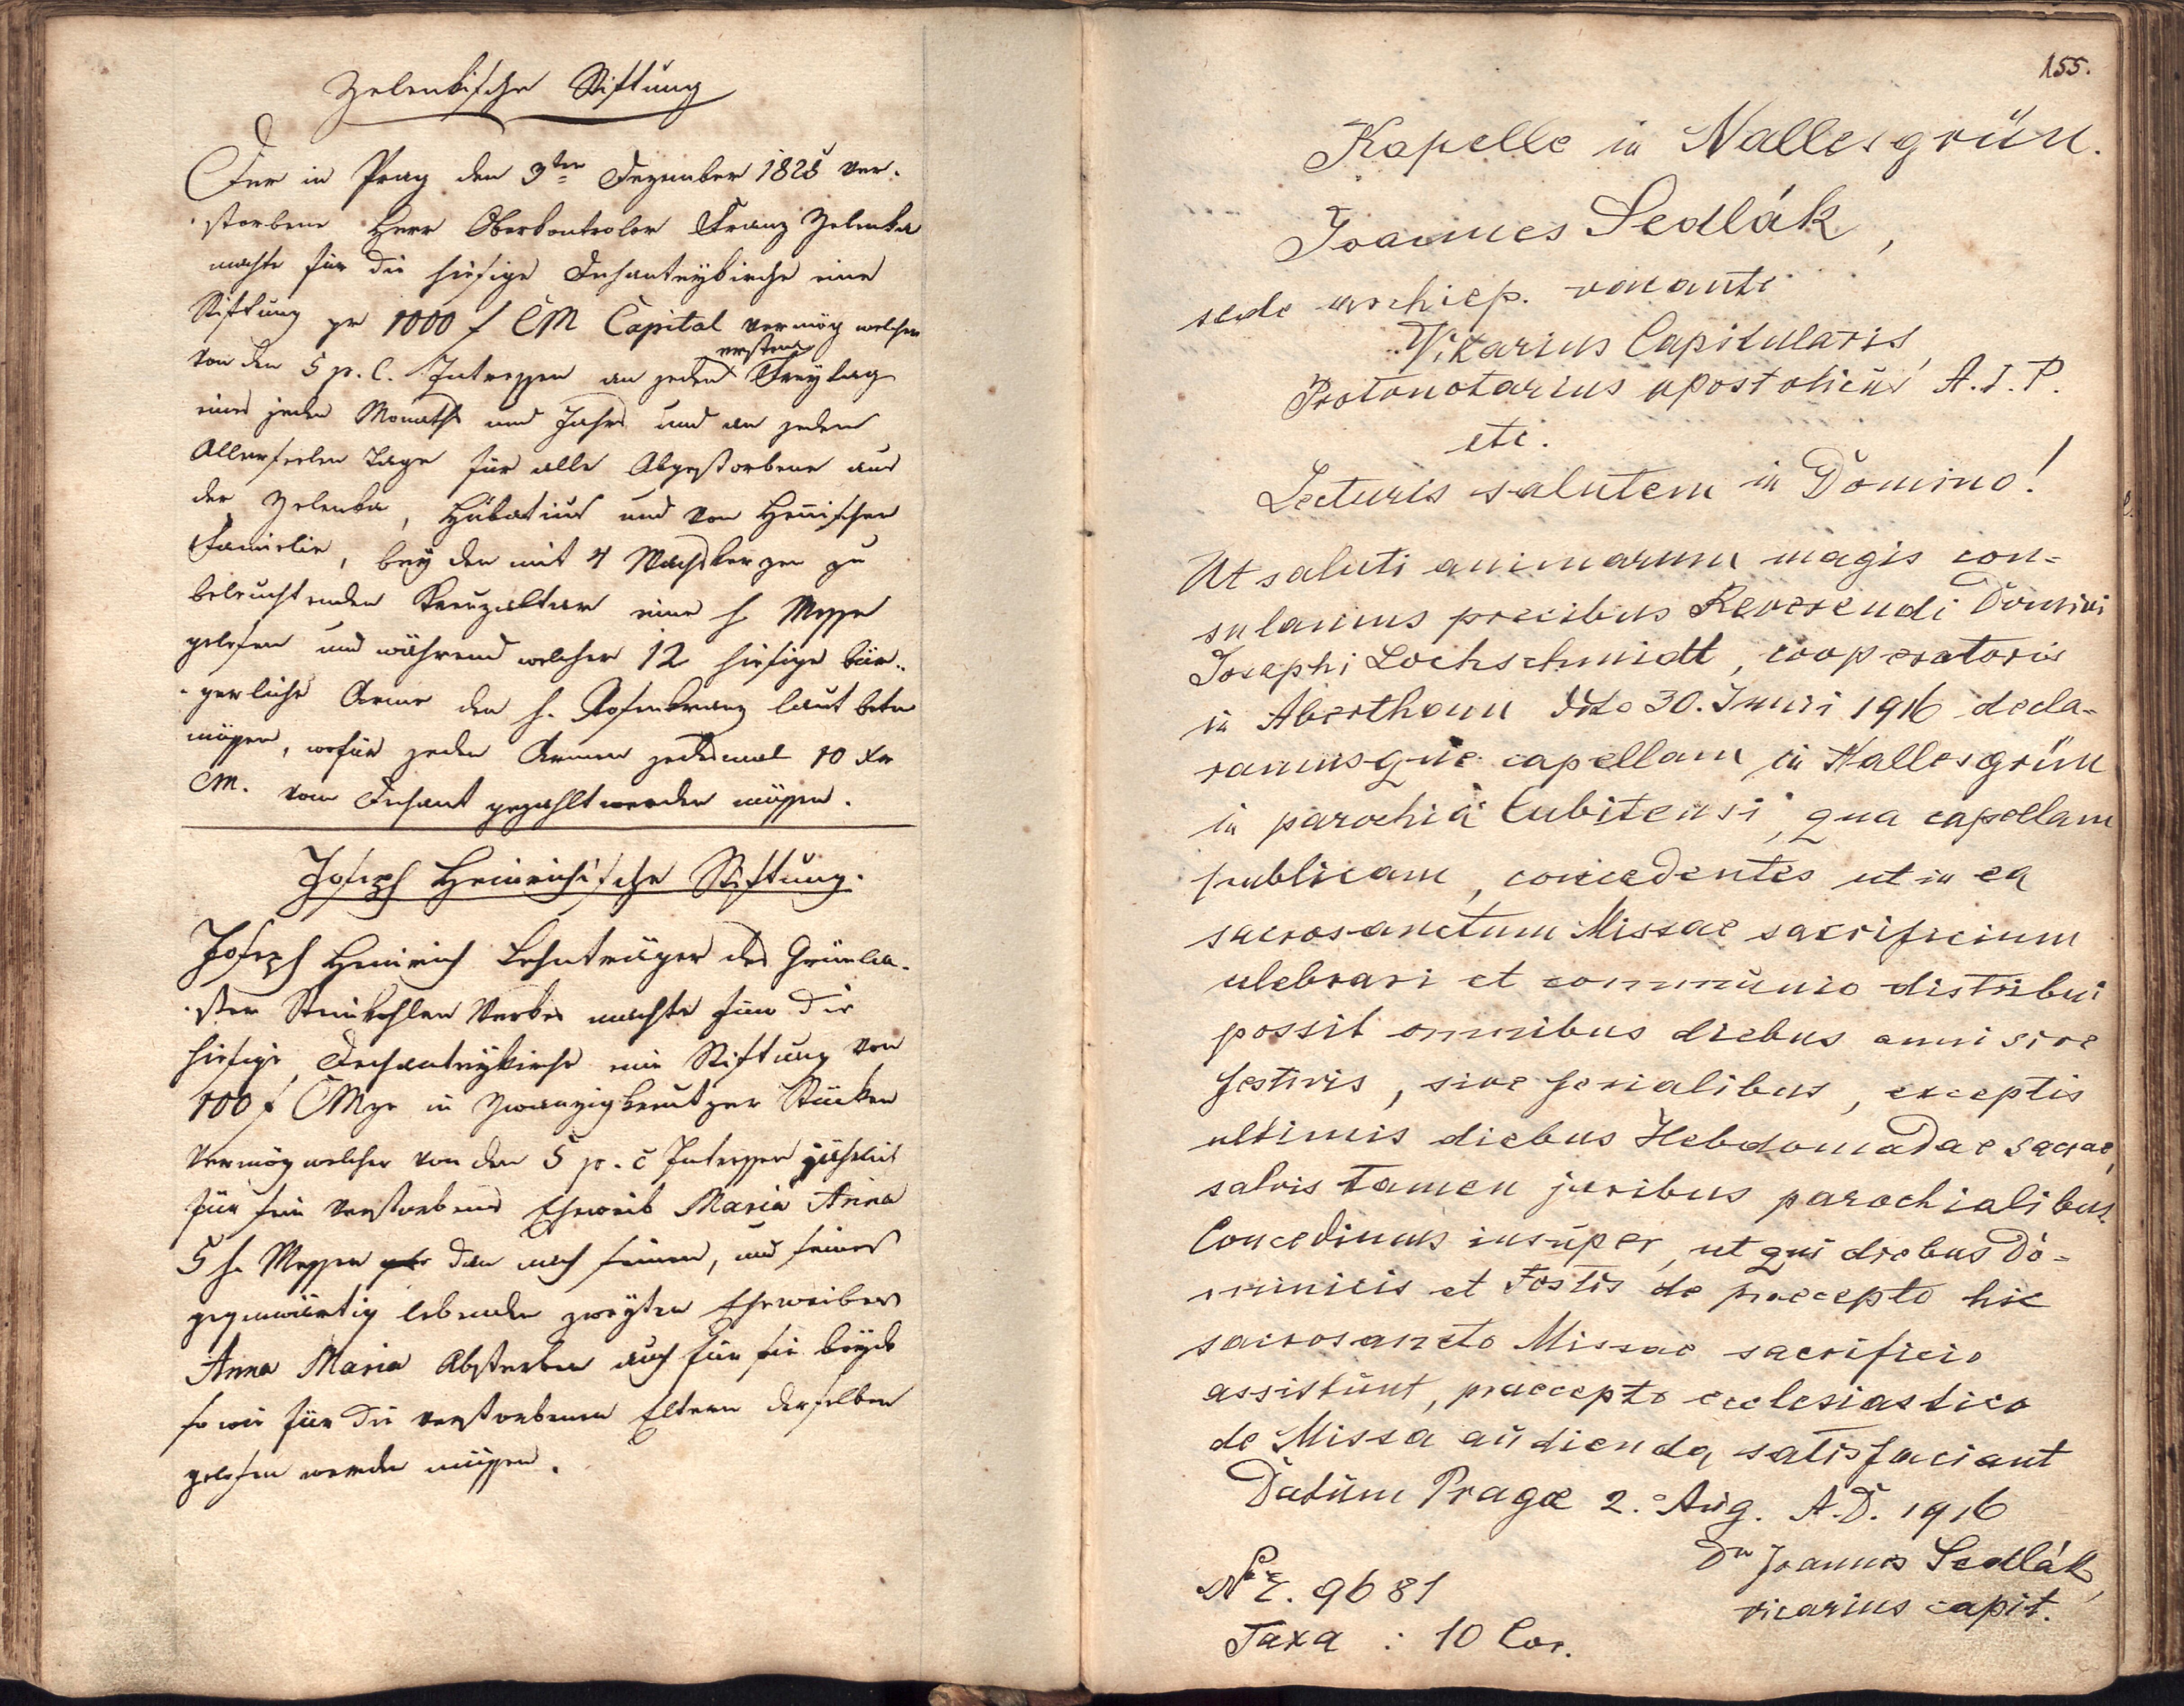 Zelenkische Stiftung
Der in Prag den 3ten Dezember 1828 ver-
storbene Herr Oberkontrolor Franz Zelenka
machte für die hiesige Dechanteykirche eine
Stiftung pr 1000 f CM Capital vermög welcher
ersten
von den 5 p. C. Intressen an jeden Freytag
eines jeden Monaths und Jahrs und an jeden
Allerseelen Tage für alle Abgestorbene aus
der Zelenka, und von
Familie, bey den mit 4 Wachskerzen zu
beleuchtenden Kreuzaltar eine h Messe
gelesen und während welcher 12 hiesige bür-
gerliche Arme den h. Rosenkranz laut beten
müssen, wofür jeden Armen jedesmal 10 xr
CM. vom Dechant gezahlt werden müssen.
Joseph Heinrichische Stiftung.
Joseph Heinrich Lehnträger des Grünla-
ster Steinkohlen Werkes machte für die
hiesige Dechanteykirche eine Stiftung von
100 f CMze in Zwanzigkreutzer Stücken
vermög welcher von den 5 p. c Intressen jährlich
für sein verstorbenes Eheweib Maria Anna
5 h. Messen dan nach seinen, und seines
gegenwärtig lebenden zweyten Eheweibes
Anna Maria Absterben auch für sie beyde
so wie für die verstorbenen Eltern derselben
gelesen werden müssen.
155.
Kapelle in Nallesgrün.
Joannes Sedlák,
sede archiep. vacante
Vikarius Capitularis,
Protonotarius apostolicus A. I. P.
etc.
Lecturis salutem in Domino!
Ut saluti animarum magis con=
sulamus precibus Reverendi Domini
Josephi Lochschmidt, cooperatoris
in Aberthamm ddo 30. Junii 1916 decla-
ramusque capellam in Nallesgrün
in parochia Cubitensi, qua capellam
publicam, concedentes ut in ea
sacrosanctum Missae sacrificium
celebrari et communio distribui
possit omnibus diebus anni sive
festivis, sive ferialibus, exceptis
ultimis diebus Hebdomadae sacrae,
salvis tamen juribus parochialibus.
Concedimus insuper, ut qui diebus Do=
minicis et Festis de praecepto hic
sacrosancto Missae sacrificio
assistunt, praecepto ecclesiastico
de Missa audienda satisfaciant
Datum Pragae 2. Aug. A.D. 1916
Dr Joannes Sedlák,
vicarius capit.
No E. 9681
Taxa : 10 Cor.